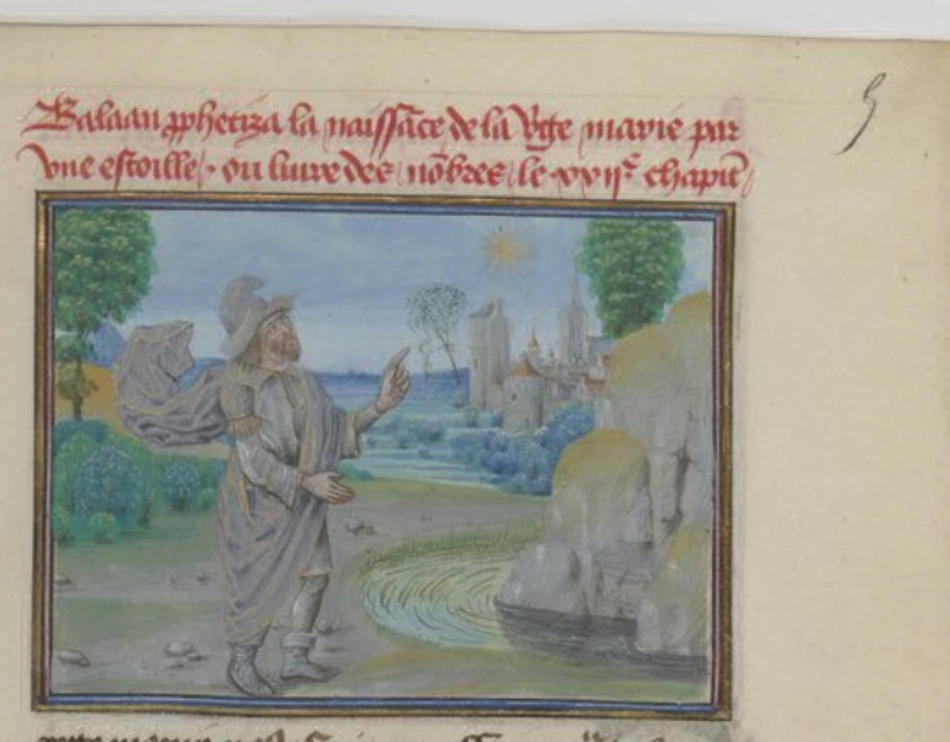 Balaan ꝓphetiza la naissãce de la Vͥge marie par
vne estoille · ou liure des nõbres le xvijᵉ chapit̃
5